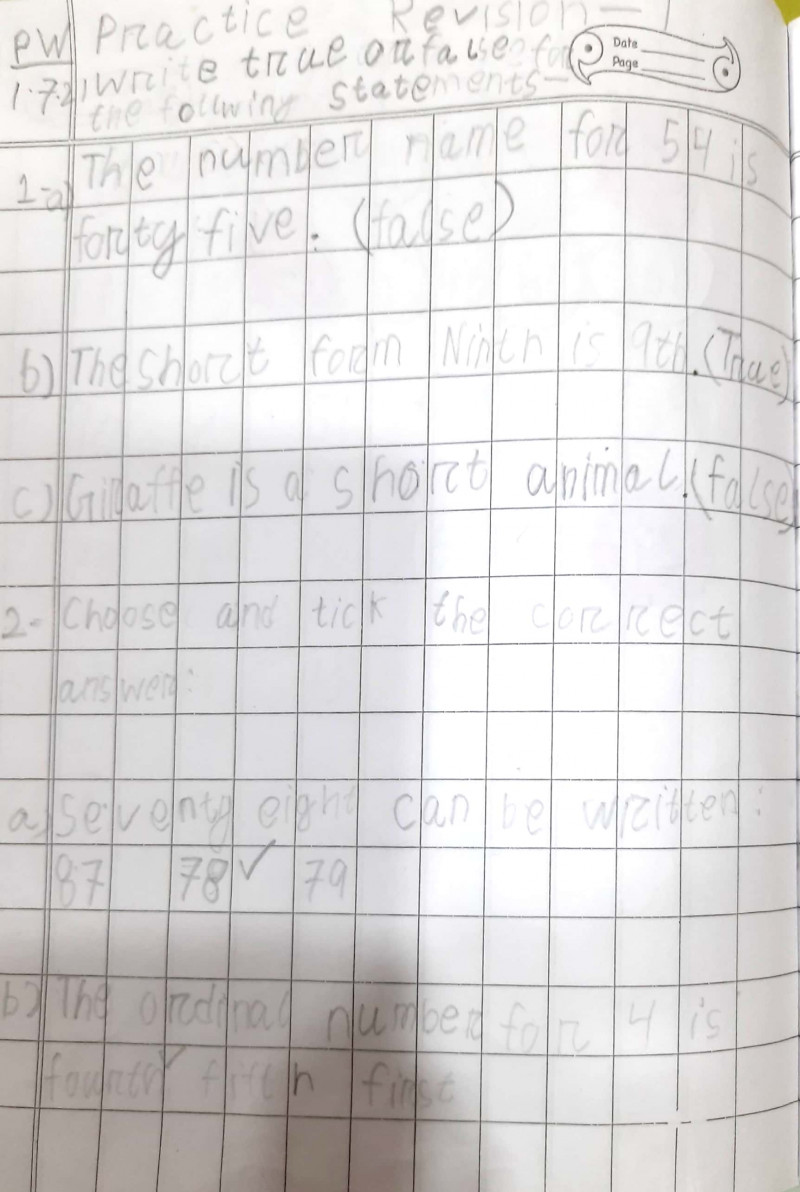 PW Practice Revision - 1
1.7.21 Write true or false for
the follwing statements-
Date
Page
1-a) The number name for 54 is
forty five. (false)
b) The Short form Ninth is 9th. (True)
c) Giraffe is a short animal. (false)
2- Choose and tick the correct
answer:
a) Seventy eight can be written:
87 78 ✓ 79
b) The ordinal number for 4 is
fourth ✓ fifth first